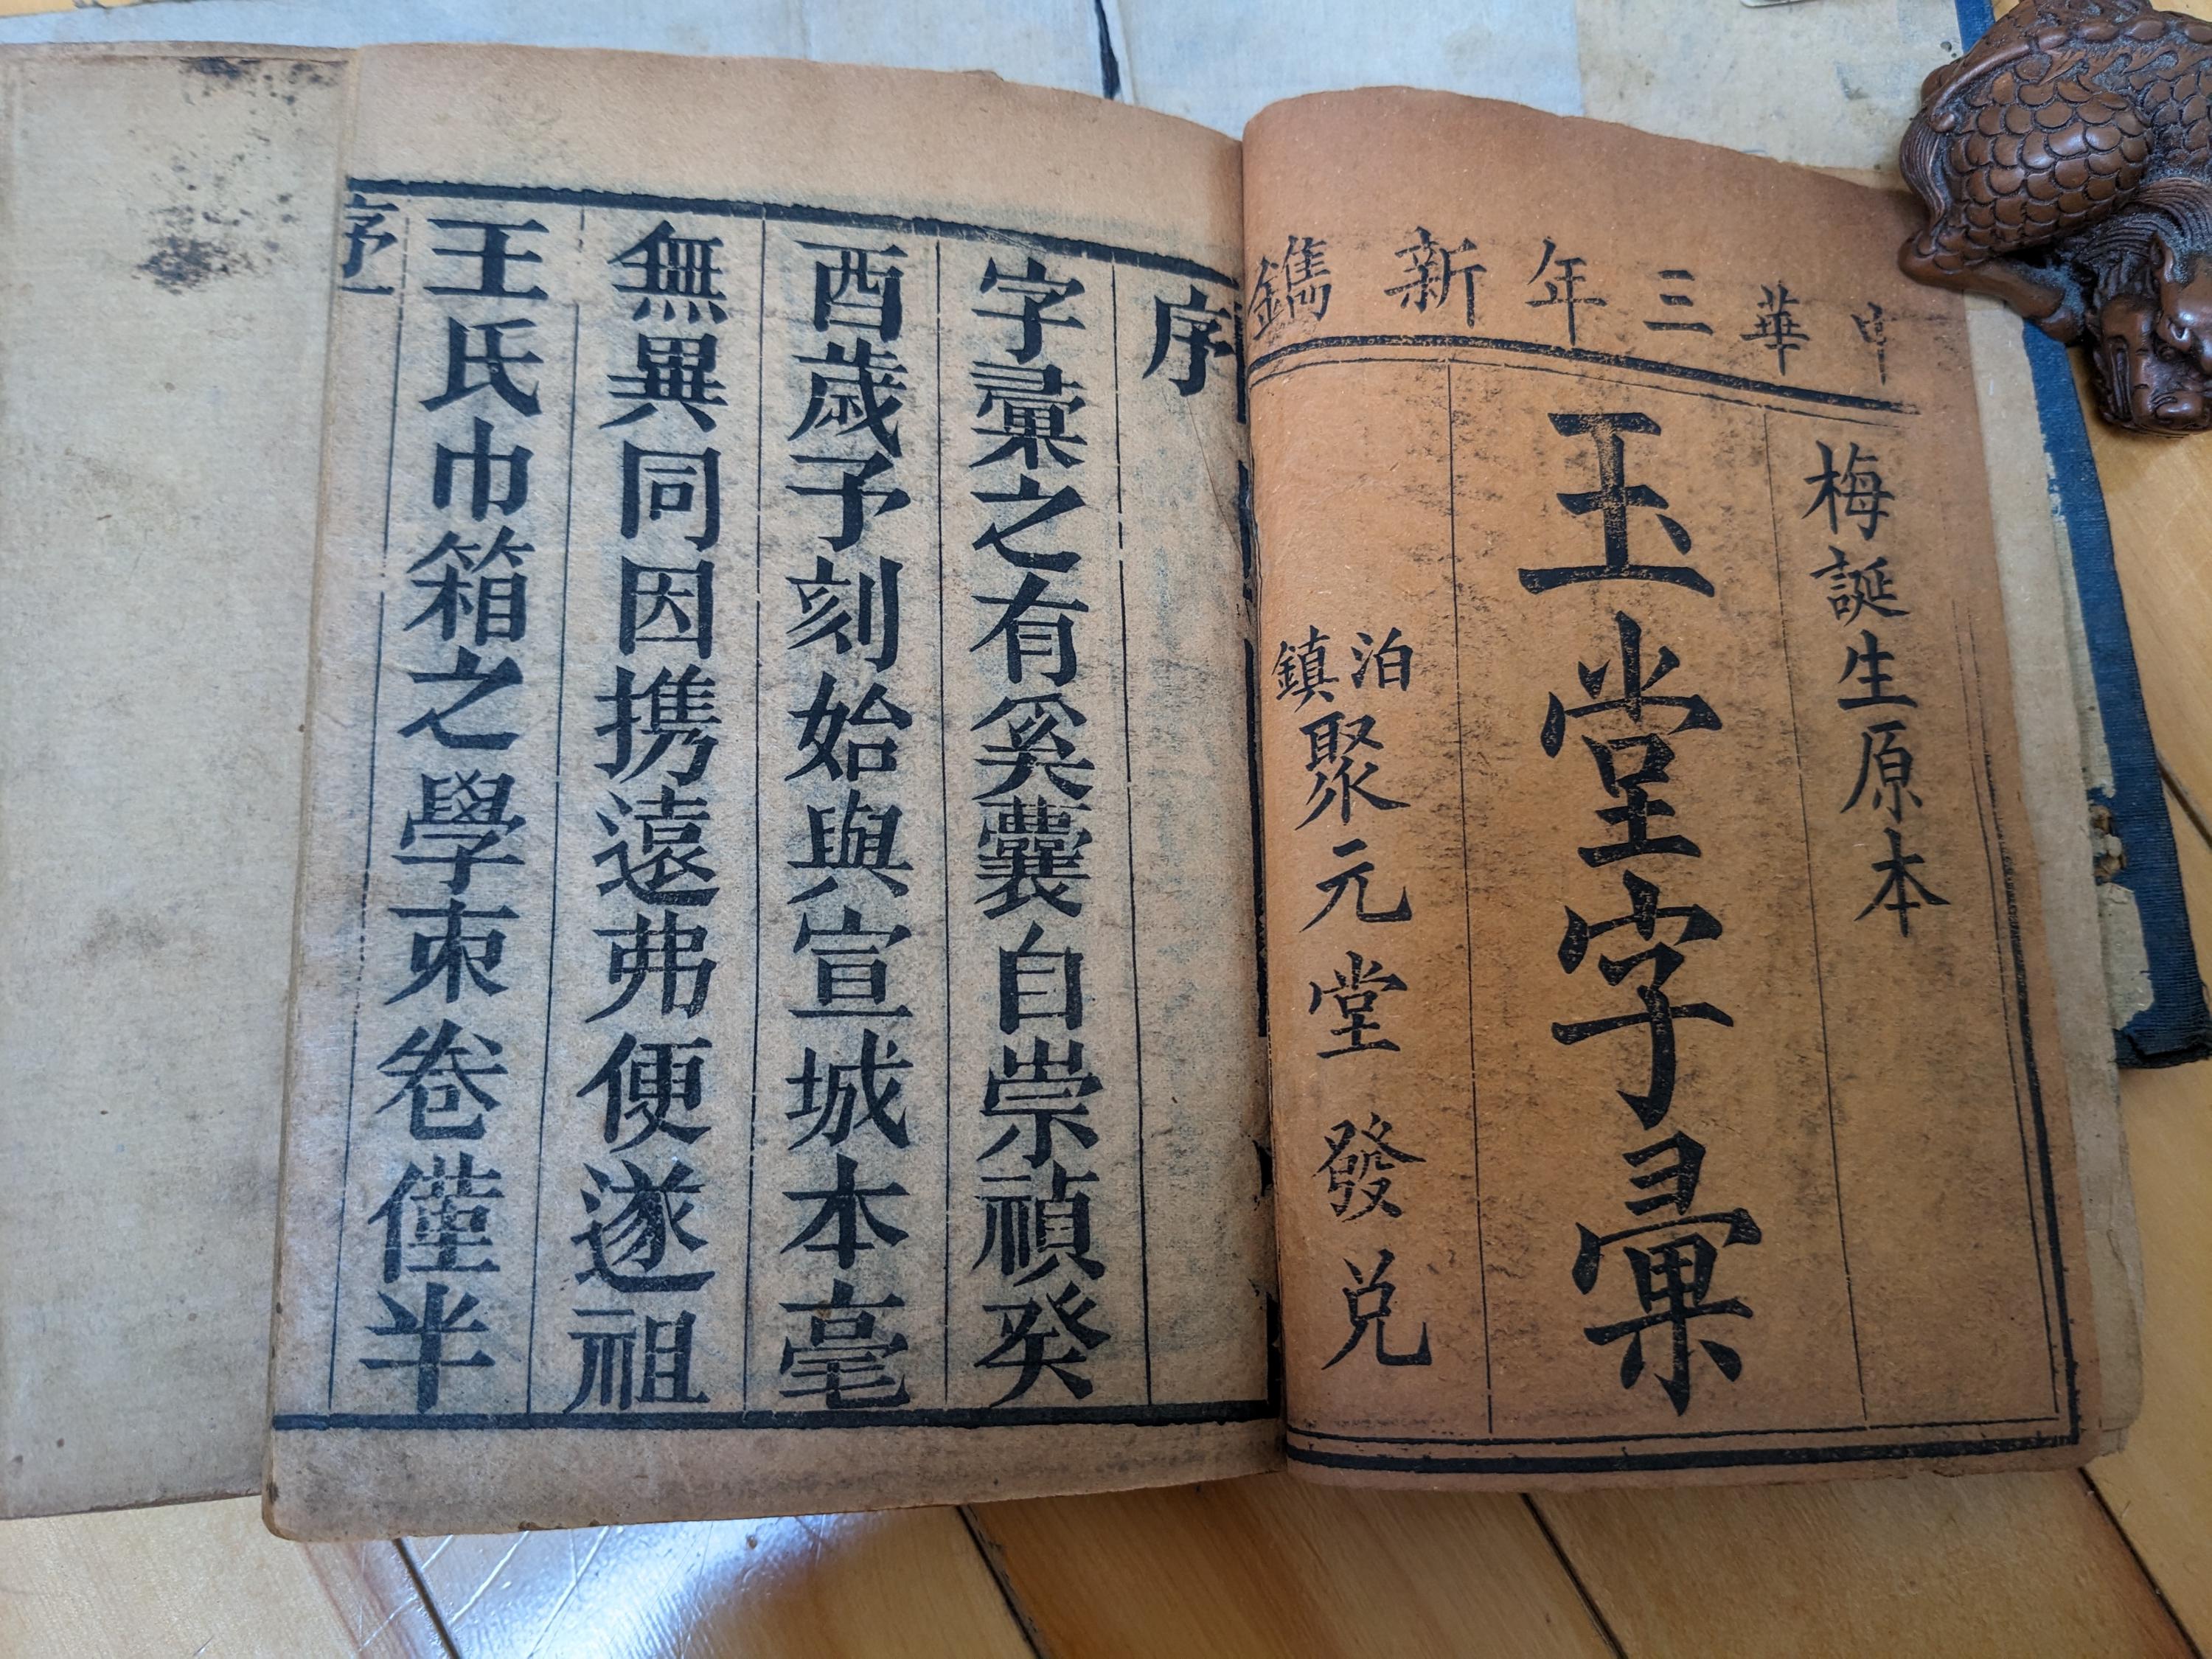 中華三年新鐫
梅誕生原本
玉堂字彙
泊鎮聚元堂發兌
序
字彙之有奚囊自崇禎癸
酉歲予刻始與宣城本毫
無異同因攜遠弗便遂祖
王氏巾箱之學束卷僅半
序